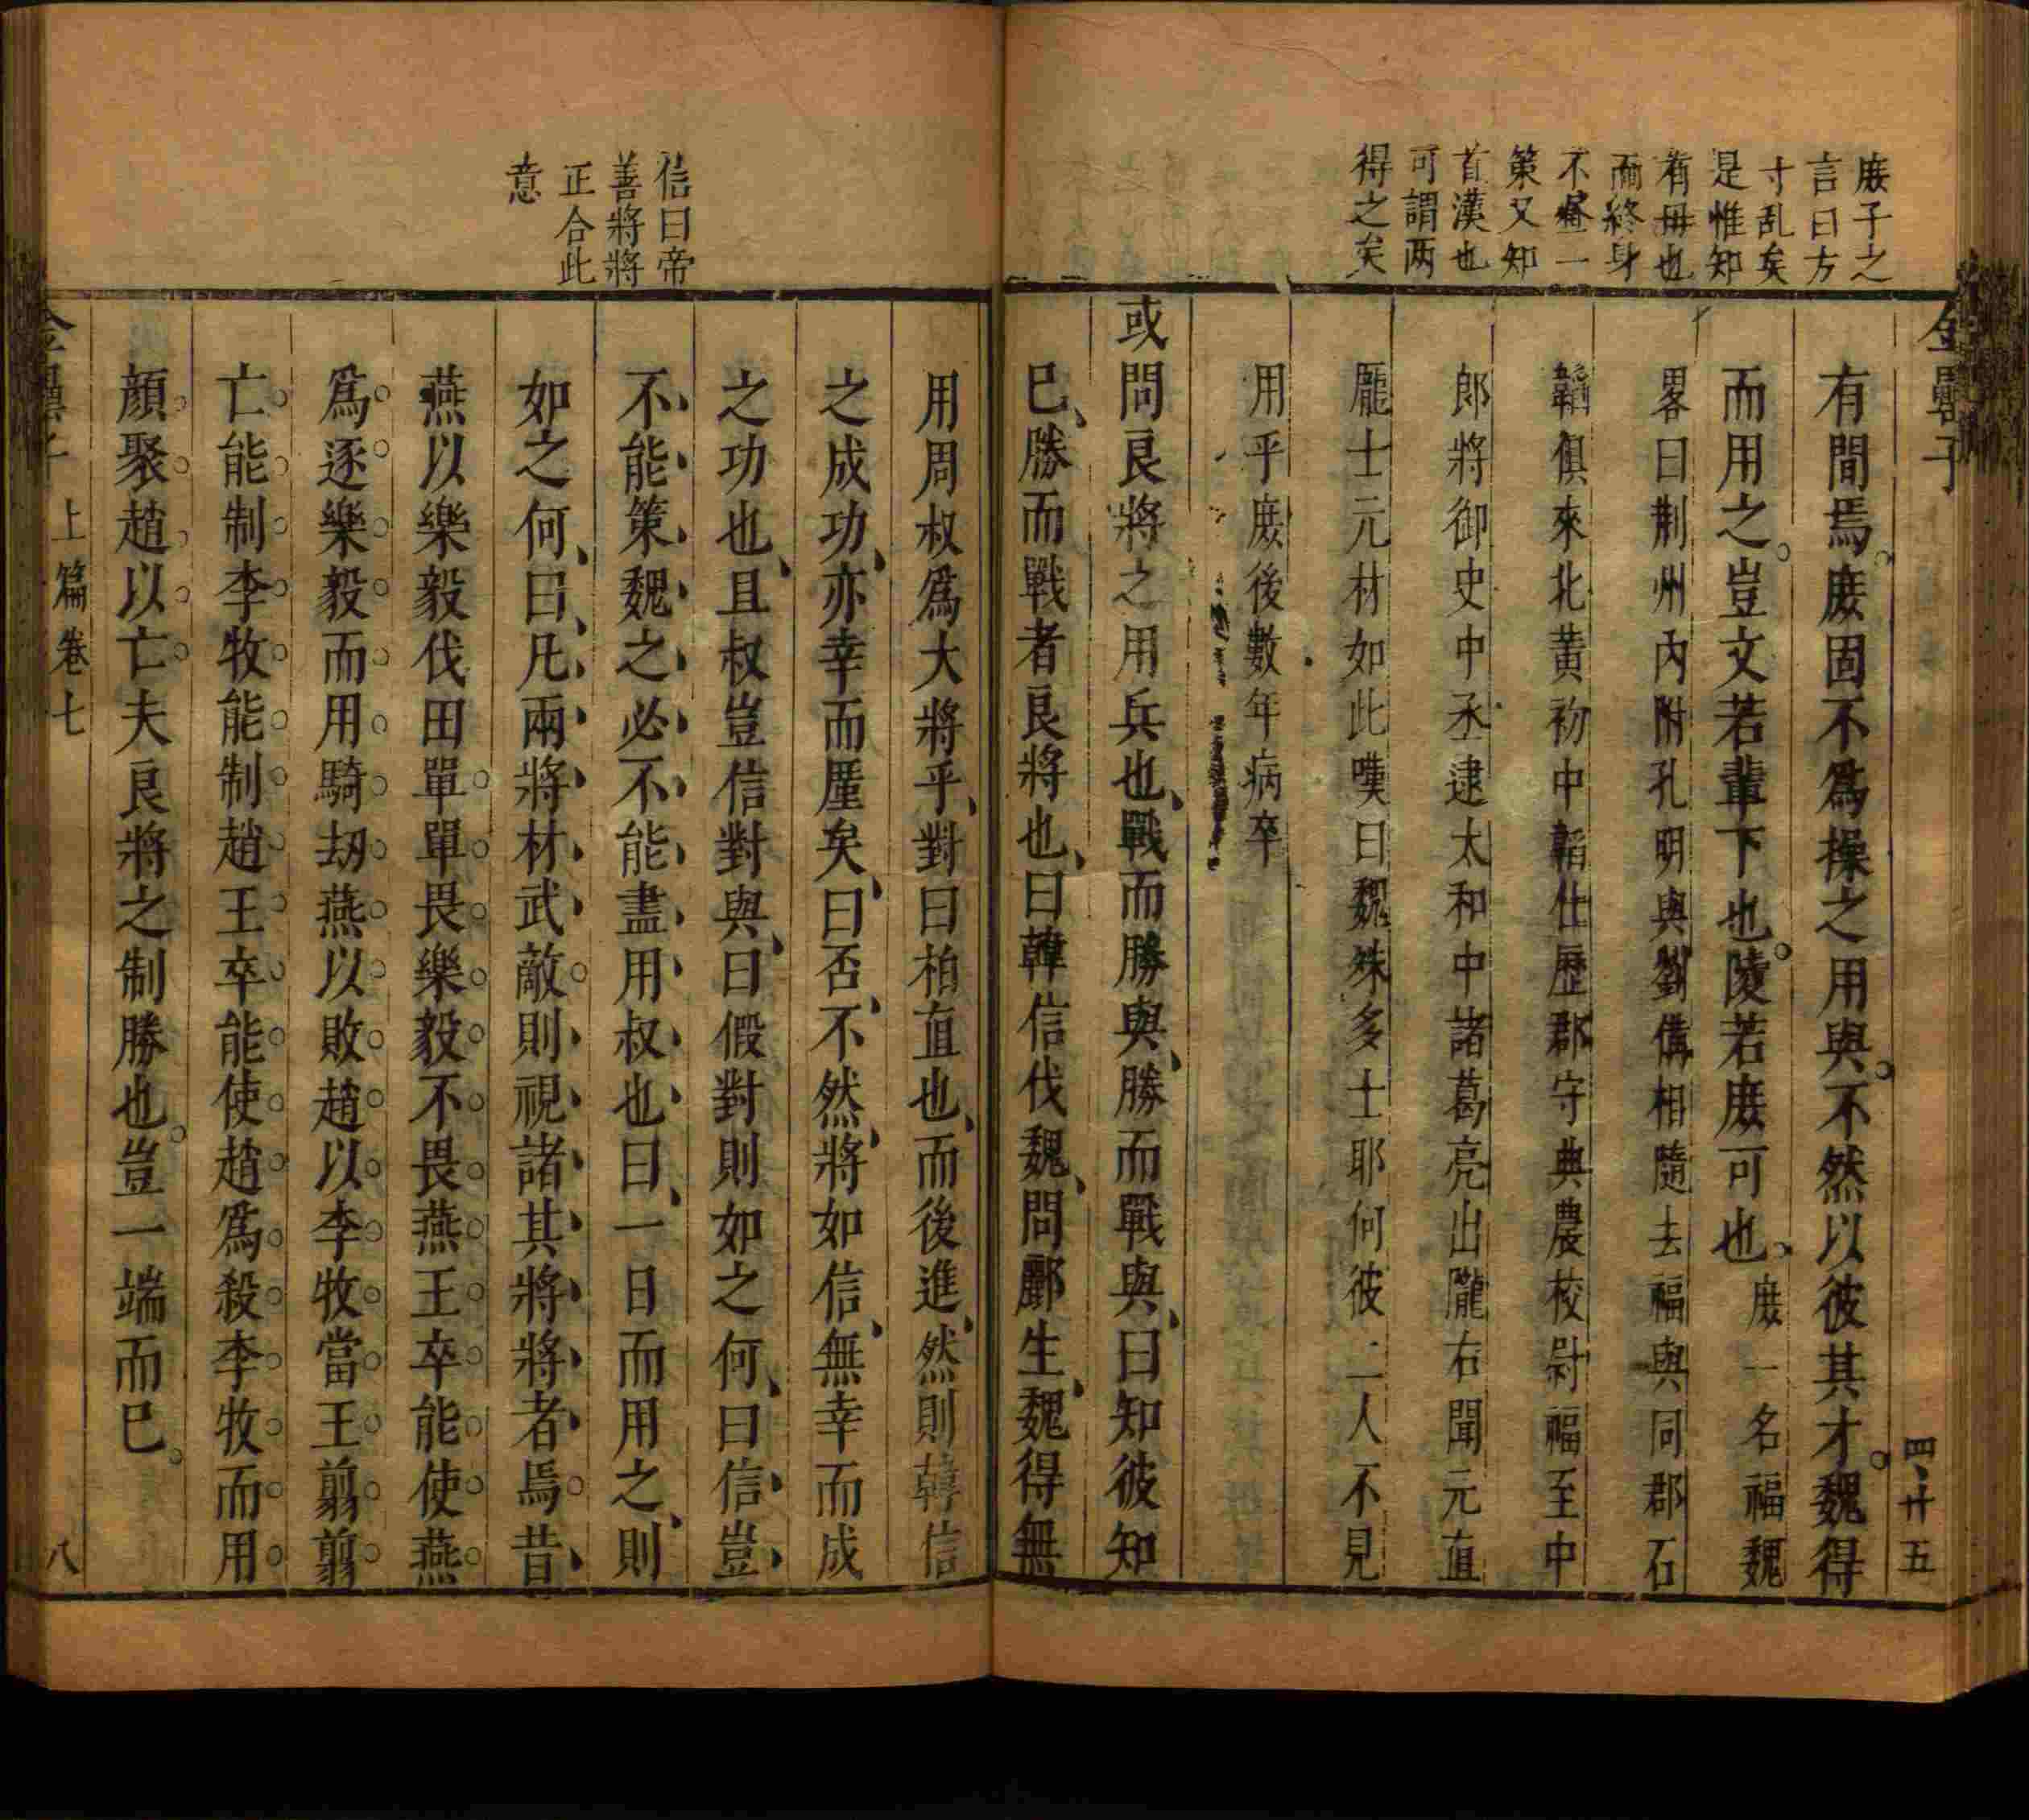 庻子之
言曰方
寸乱矣
是惟知
有毋也
而終身
不畫一
策又知
有漢也
可謂两
得之矣
四廿五
有間焉庻固不爲操之用與不然以彼其才魏得
而用之豈文若輩下也陵若庻可也庻一名福魏
畧曰荆州內附孔明與劉俻相隨去福與同郡石
韜俱來北黃初中韜仕歷郡守典農校尉福至中
郎將御史中丞逮太和中諸葛亮出隴右聞元直
龎士元材如此嘆曰魏殊多士耶何彼二人不見
用乎庻後數年病卒
或問良將之用兵也戰而勝與勝而戰與曰知彼知
已勝而戰者良將也曰韓信伐魏問酈生魏得無
信曰帝
善將將
正合此
意
用周叔爲大將乎對曰柏直也而後進然則韓信
之成功亦幸而厪矣曰否不然將如信無幸而成
之功也且叔豈信對與曰假對則如之何曰信豈
不能策魏之必不能盡用叔也曰一日而用之則
如之何曰凡兩將材武敵則視諸其將將者焉昔
燕以樂毅伐田單單畏樂毅不畏燕王卒能使燕
爲逐樂毅而用騎刼燕以敗趙以李牧當王翦翦
亡能制李牧能制趙王卒能使趙爲殺李牧而用
顔聚趙以亡夫良將之制勝也豈一端而已
上篇卷七
八